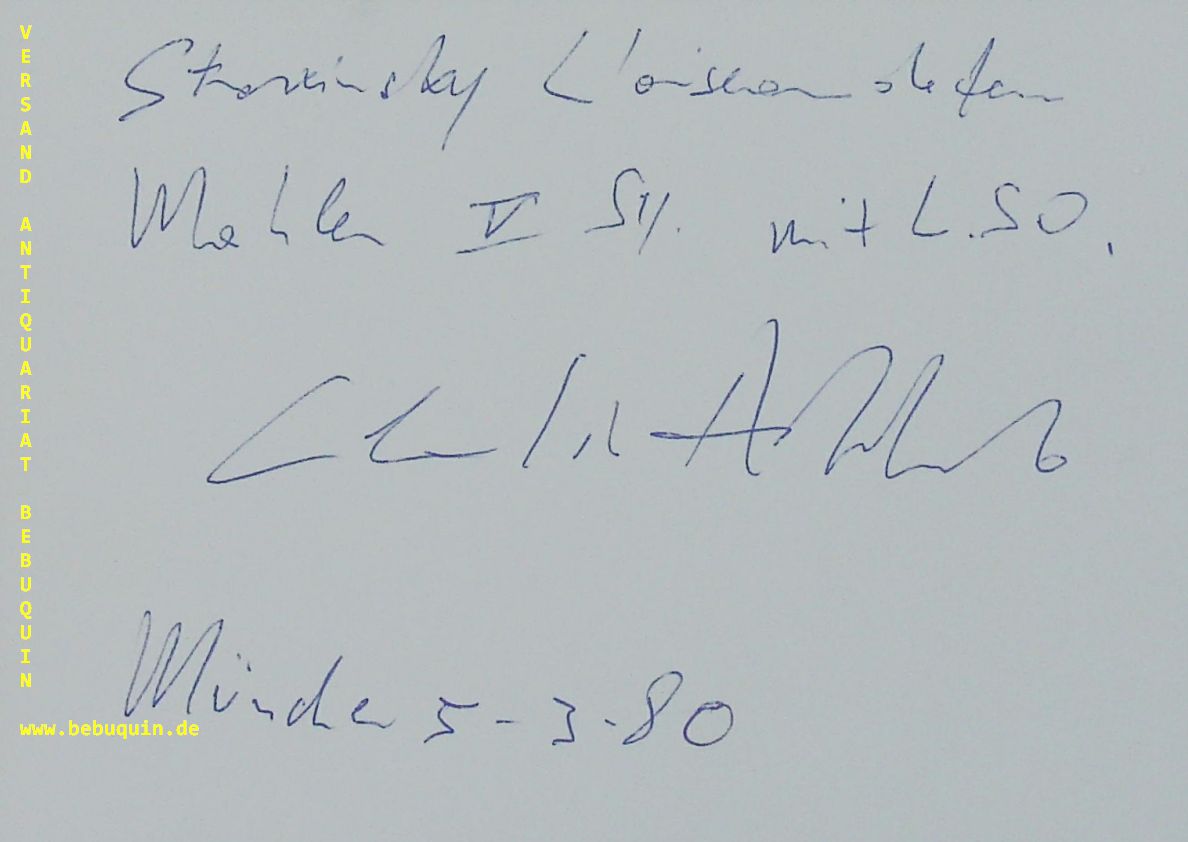 VERSAND ANTIQUARIAT BEBUQUIN
www.bebuquin.de
Stravinsky L'oiseau de feu
Mahler V Sy. mit L.SO.
Claudio Abbado
München 5-3-80